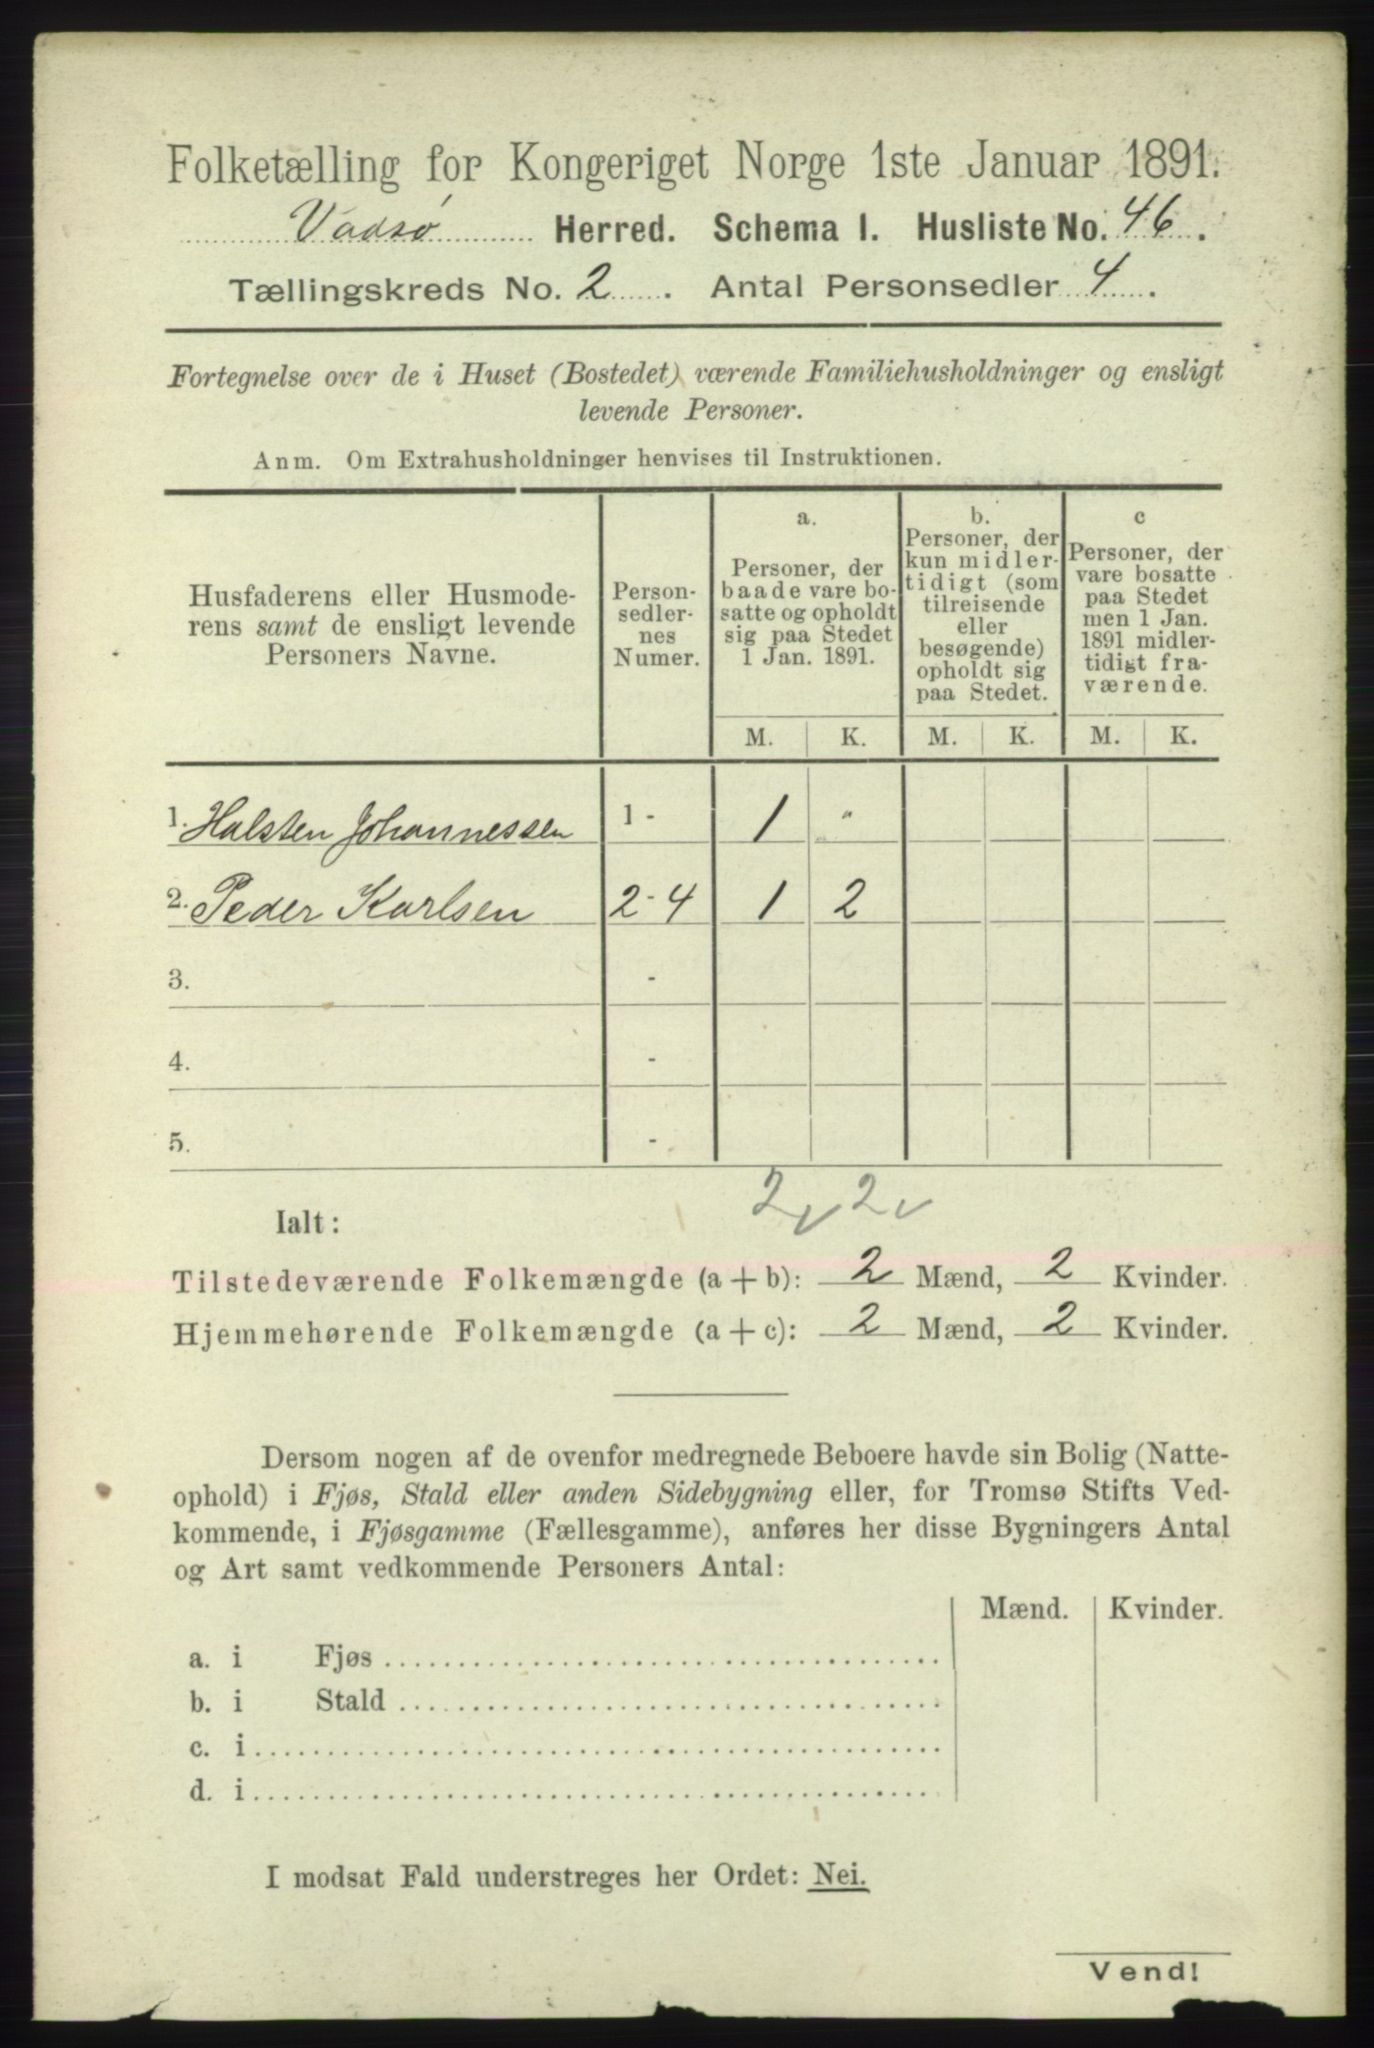 Folketælling for Kongeriget Norge 1ste Januar 1891.
Vadsø Herred. Schema I. Husliste No. 46.
Tællingskreds No. 2. Antal Personsedler 4.
Fortegnelse over de i Huset (Bostedet) værende Familiehusholdninger og ensligt
levende Personer.
Anm. Om Extrahusholdninger henvises til Instruktionen.
Husfaderens eller Husmode-
rens samt de ensligt levende
Personers Navne.
Person-
sedler-
nes
Numer.
a.
Personer, der
baade vare bo-
satte og opholdt
sig paa Stedet
1 Jan. 1891.
b.
Personer, der
kun midler-
tidigt (som
tilreisende
eller
besøgende)
opholdt sig
paa Stedet.
c
Personer, der
vare bosatte
paa Stedet
men 1 Jan.
1891 midler-
tidigt fra-
værende.
M. K. M. K. M. K.
1. Halsten Johannessen 1 - 1 "
2. Peder Karlsen 2 - 4 1 2
3. -
4. -
5. -
2 2
Ialt:
Tilstedeværende Folkemængde (a + b): 2 Mænd, 2 Kvinder.
Hjemmehørende Folkemængde (a + c): 2 Mænd, 2 Kvinder.
Dersom nogen af de ovenfor medregnede Beboere havde sin Bolig (Natte-
ophold) i Fjøs, Stald eller anden Sidebygning eller, for Tromsø Stifts Ved-
kommende, i Fjøsgamme (Fællesgamme), anføres her disse Bygningers Antal
og Art samt vedkommende Personers Antal:
Mænd. Kvinder.
a. i Fjøs
b. i Stald
c. i
d. i
I modsat Fald understreges her Ordet: Nei.
Vend!